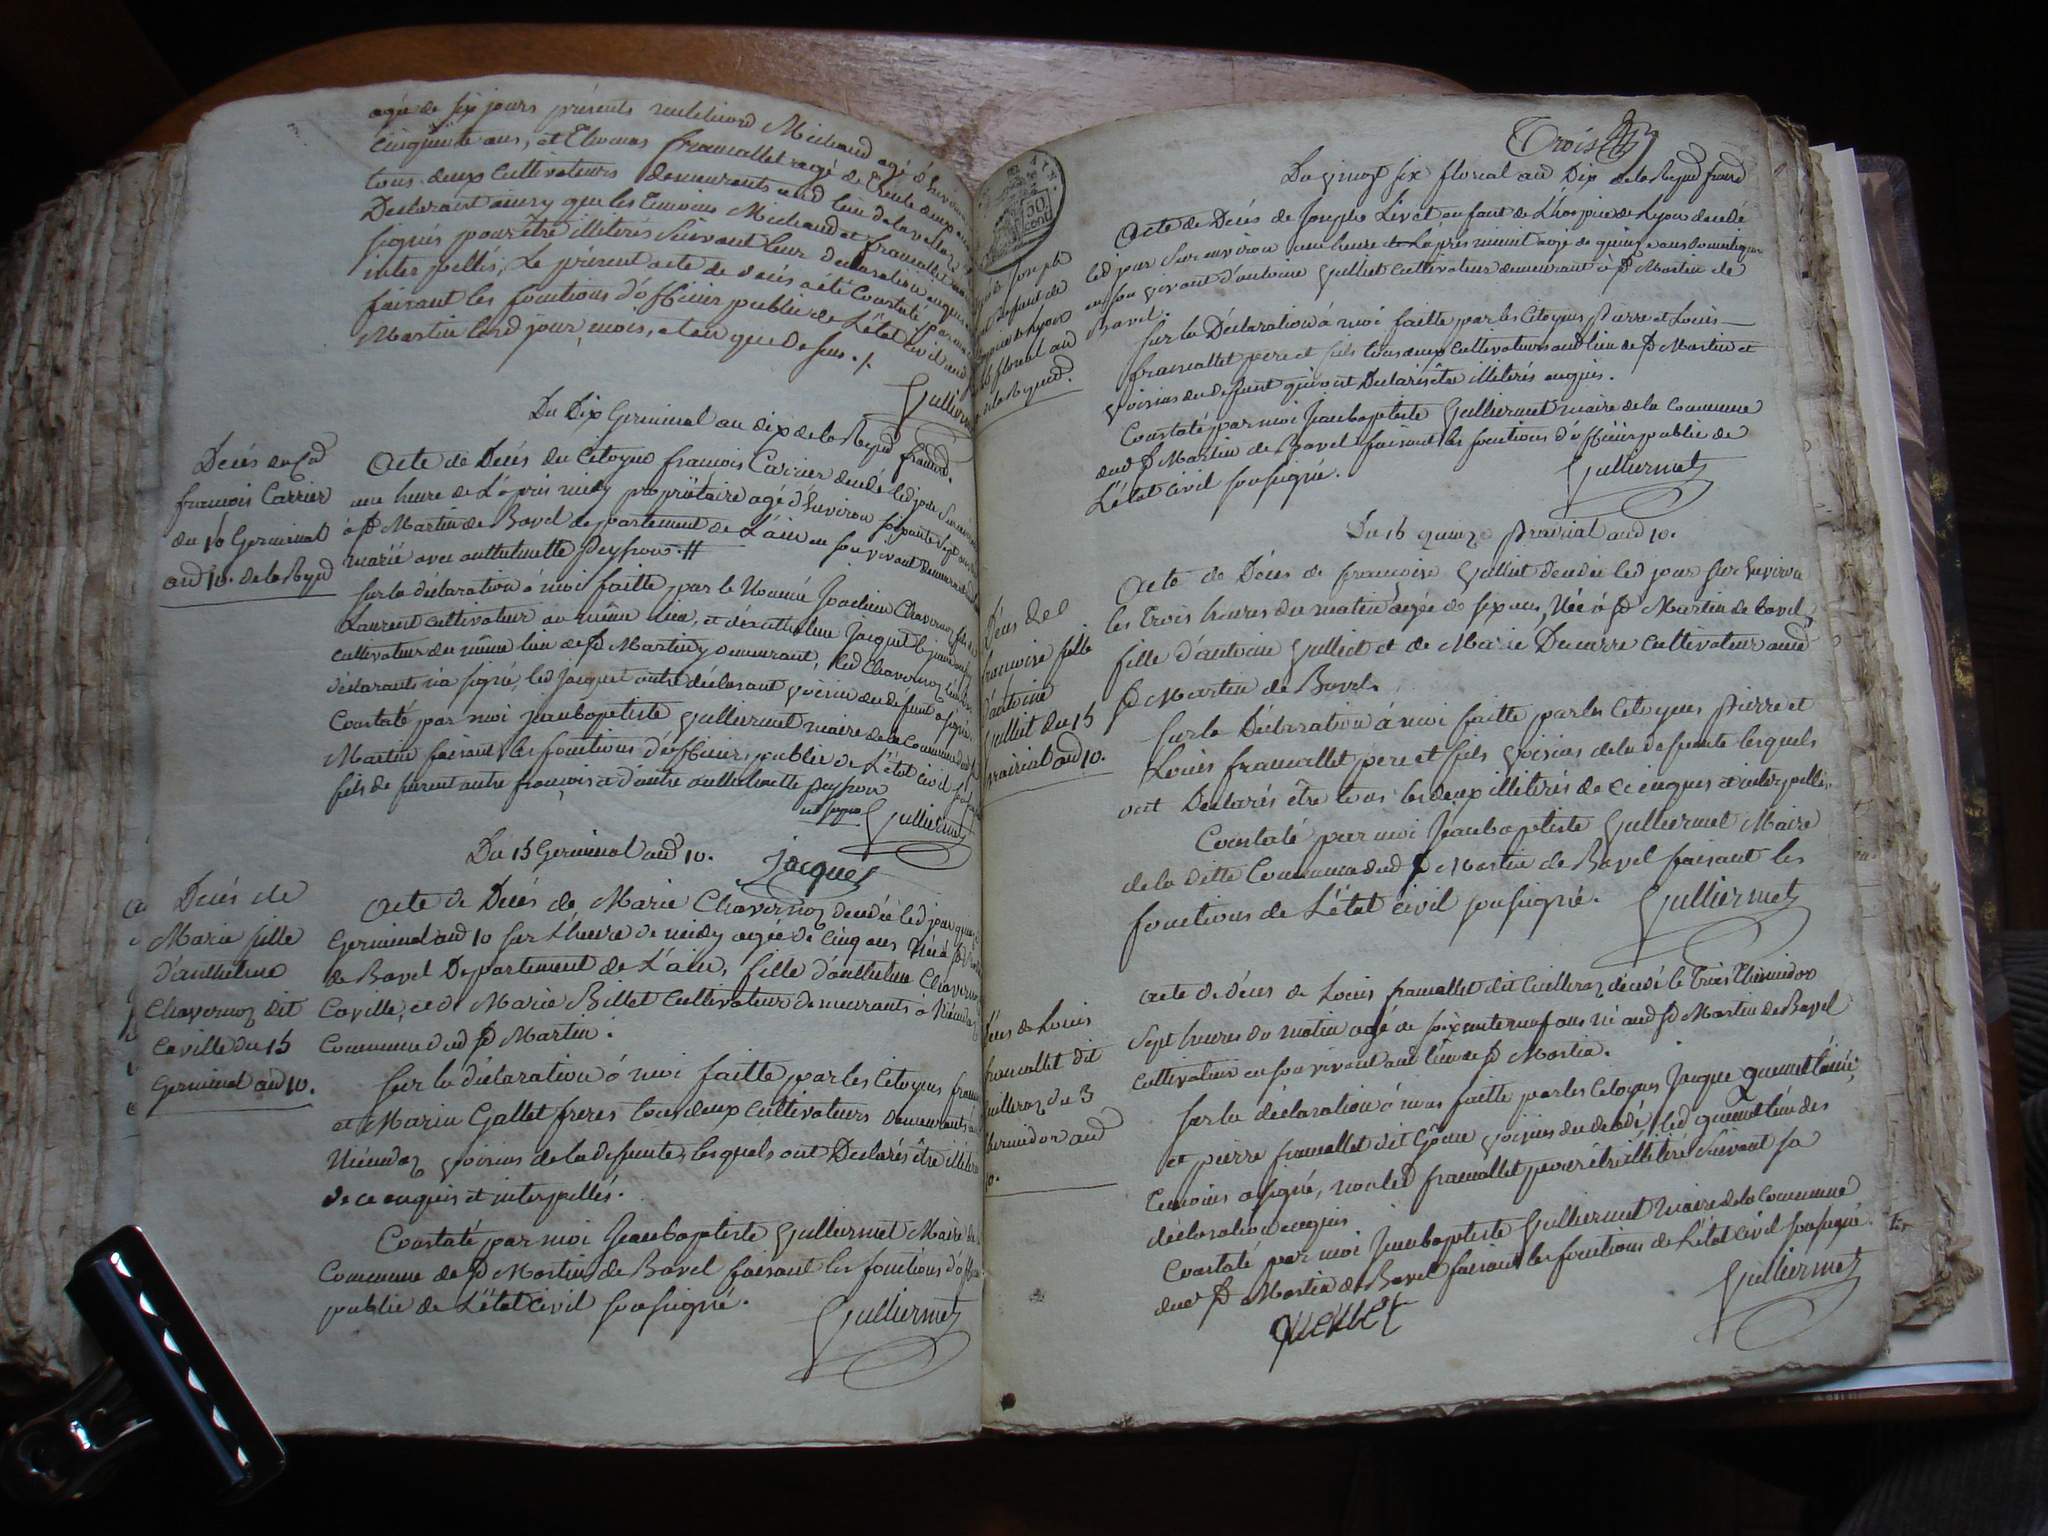 agée de six jours présents Michaud agé d'environ
cinquante ans, et Thomas framallet agé de trente deux ans
tous deux cultivateurs demeurants aud lieu de lavellaz
Declarant ainsy que les temoins Michaud et framallet
signés pour être illiterés suivant leur declaration enquis
interpellés, Le présent acte de décés a été Constaté par moi
faisant les fonctions d'officier public de L'état civil aud
Martin Lesd jour, mois, et an que dessus ./.
Gulliermet
Du Dix Germinal an dix de la Repub francs.
Décés du Cod
francois Carrier
du 10 Germinal
and 10. de la Repud
Acte de Décés du Citoyen francois Carrier decedé led jour sur environ
une heure de L'apris midy propriétaire agé d'Environ soixante sept ans
à St Martin de Bavel departement de L'ain en son vivant demeurant
marié avec anthelmette peysson. //
sur la déclaration à moi faitte par le Nommé Joachim Chavernoz fils de
Laurent cultivateur au même lieu, et d'anthelme Jacquet
cultivateur du même lieu de St Martin y demeurant, led Chavernoz
déclarants n'a signé, led jacquet autre déclarant voisin du défunt a signé.
Constaté par moi jeanbaptiste Gulliermet maire de la Commune dud St
Martin faisant les fonctions d'officier public de L'état civil
fils de francois et d'autre anthelmette peysson
Gulliermet
Du 15 Germinal and 10.
Jacquet
Décés de
Marie fille
d'anthelme
Chavernoz dit
Caville du 15
Germinal and 10.
Acte de Décés de Marie Chavernoz decedée led jour quinze
Germinal and 10 sur L'heure de midy agée de Cinq ans Née à St Martin
de Bavel Departement de L'ain, fille d'anthelme Chavernoz
Caville, et de Marie Billet Cultivateur demeurants à Niémdoz
Commune dud St Martin.
sur la déclaration à moi faitte par les Citoyens francois
et Marin Gallet freres tous deux cultivateurs demeurants à
Niémdoz voisins de la defunte, lesquels ont Declarés être illiterés
de ce enquis et interpellés.
Constaté par moi Jeanbaptiste Gulliermet Maire de la
Commune de St Martin de Bavel faisant les fonctions d'officier
public de L'état Civil soussigné.
Gulliermet
Trois
Du vingt six floreal an Dix de la Repud francd
Joseph
enfant de
Lyon
floreal an
de la Repud.
Acte de Décés de Joseph Livet enfant de L'hospice de Lyon decedé
led jour sur environ une heure de L'apris minuit agé de quinze ans Domestique
en son vivant d'antoine Gulliet cultivateur demeurant à St Martin de
Bavel.
sur la Déclaration à moi faitte par les Citoyens pierre et Louis
framallet pere et fils tous deux cultivateurs aud lieu de St Martin et
voisins du defunt qui ont Declarés être illiterés enquis.
Constaté par moi Jeanbaptiste Gulliermet maire de la Commune
dud St Martin de Bavel faisant les fonctions d'officier public de
L'état civil soussigné.
Gulliermet
Du 15 quinze prairial and 10.
Décés de
francoise fille
d'antoine
Gulliet du 15
prairial and 10.
Acte de Décés de francoise Gulliet decedée led jour sur Environ
les trois heures du matin agée de six ans, Née à St Martin de bavel,
fille d'antoine Gulliet et de Marie Ducarre cultivateur aud
St Martin de Bavel.
sur la Déclaration à moi faitte par les Citoyens pierre et
Louis framallet pere et fils voisins de la defunte lesquels
ont Declarés être tous les deux illiterés de ce enquis et interpellés.
Constaté par moi Jeanbaptiste Gulliermet Maire
de la ditte Commune dud St Martin de Bavel faisant les
fonctions de L'état civil soussigné.
Gulliermet
Décés de Louis
framallet dit
Cuilleroz du 3
thermidor and
10.
Acte de décés de Louis framallet dit Cuilleroz décédé le Trois Thermidor
Sept heures du matin agé de soixante neuf ans né aud St Martin de Bavel
cultivateur en son vivant aud lieu de St Martin.
sur la déclaration à nous faitte par les Citoyens Jacque quenet l'ainé,
et pierre framallet dit voisins du decedé, led quenet l'un des
temoins a signé, non led framallet pour être illiteré suivant sa
déclaration enquis
Constaté par moi Jeanbaptiste Gulliermet maire de la Commune
dud St Martin de Bavel faisant les fonctions de L'état civil soussigné.
Gulliermet